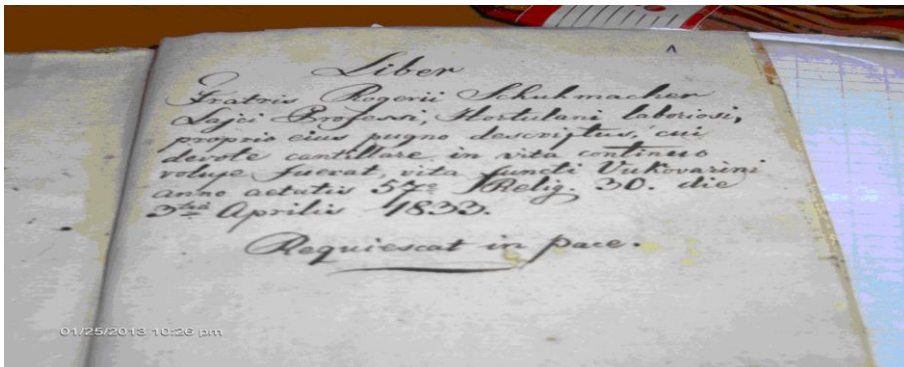 1
Liber
Fratris Rogerii Schuhmacher
Lajci Professi, Hortulani laboriosi,
proprio eius pugno descriptus, cui
devote cantillare in vita continuo
volupe fuerat, vita functi Vukovarini
anno aetatis 57º Relig. 30. die
3tia Aprilis 1833.
Requiescat in pace.
01/25/2013 10:26 pm